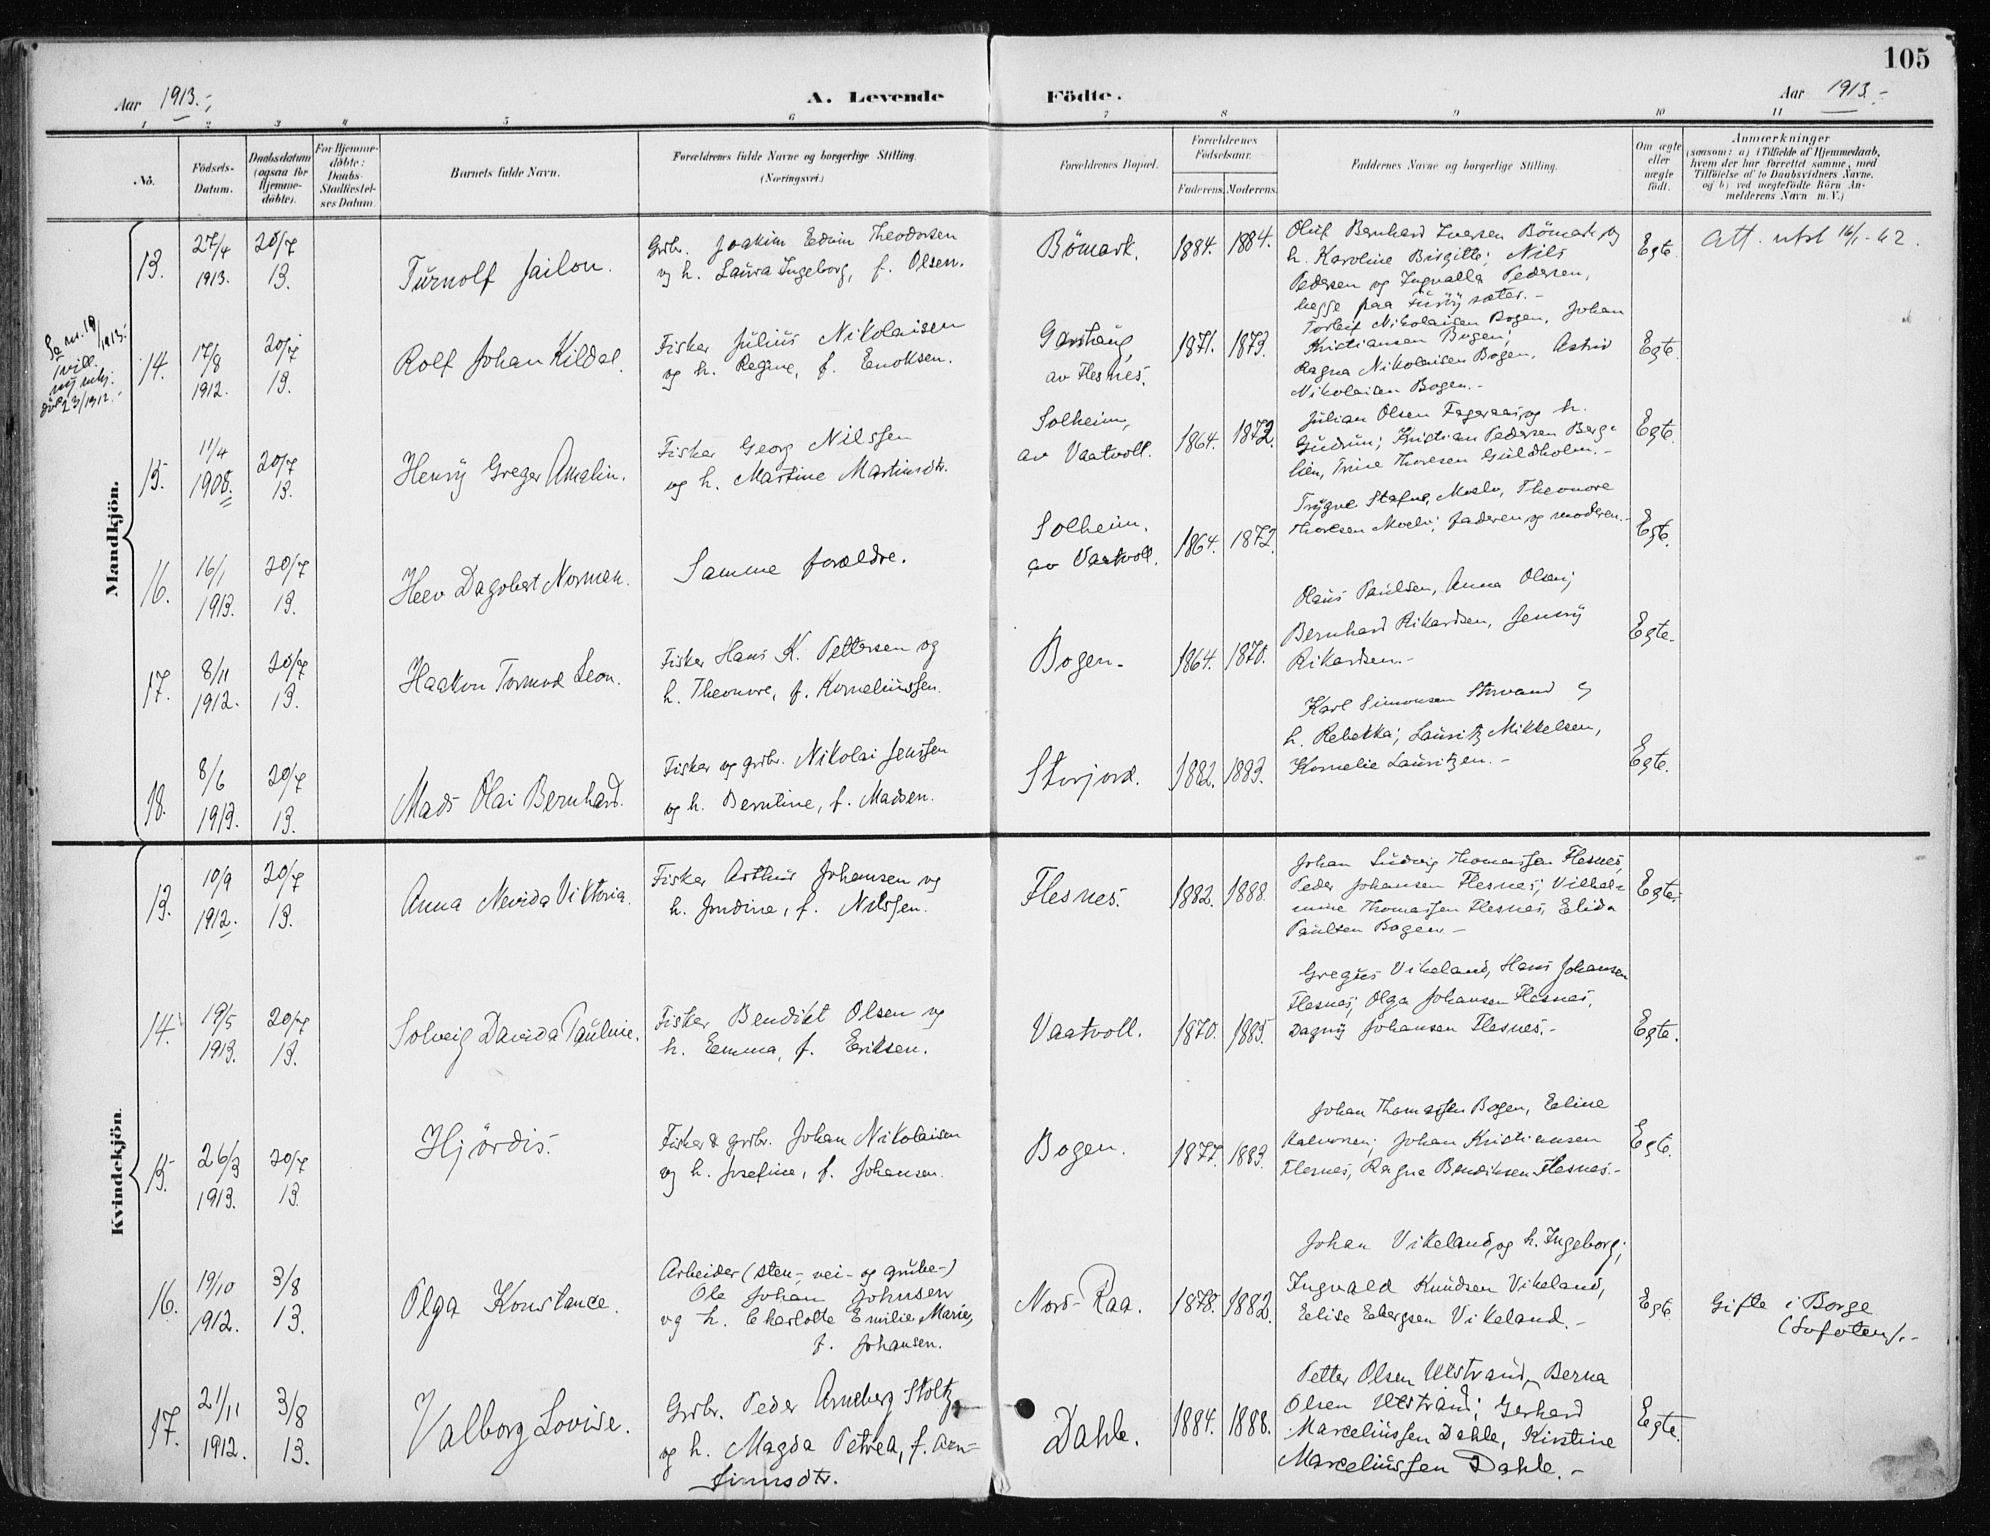 105
Aar 1913.
A. Levende Födte.
Aar 1913.
1 2 3 4 5 6 7 8 9 10 11
No.
Födsels-
Datum.
Daabsdatum
(ogsaa for
Hjemme-
döbte).
For Hjemme-
döbte:
Daabs-
Stadfæstel-
ses Datum.
Barnets fulde Navn.
Forældrenes fulde Navne og borgerlige Stilling.
(Næringsvei.)
Forældrenes Bopæl.
Forældrenes
Födselsaar.
Faderens. Moderens.
Faddernes Navne og borgerlige Stilling.
Om ægte
eller
uægte
födt.
Anmærkninger
(saasom: a) i Tilfælde af Hjemmedaab,
hvem der har forrettet samme, med
Tilföielse af to Daabsvidners Navne.
og b) ved uægtefödte Börn An-
melderens Navn m. V.)
Mandkjön.
13.
27/4
1913.
20/7
13.
Turnolf Jailon.
Grbr. Joakim Edvin Theodorsen
og h. Laura Ingeborg, f. Olsen.
Bömark.
1884. 1884.
Oluf Bernhard Iversen Bömark og
h. Karoline Birgitte; Nils
Pedersen og Ingvalla Pedersen,
begge paa
Egte.
Att. utst 16/1-62.
14.
17/8
1912.
20/7
13.
Rolf Johan Kildal.
Fisker Julius Nikolaisen
og h. Regine, f. Enoksen.
av Flesnes.
1871. 1873.
Torleif Nikolaisen Bogen, Johan
Kristiansen Bogen;
Ragna Nikolaisen Bogen, Astrid
Nikolaisen Bogen.-
Egte.
15.
11/4
1908.
20/7
13.
Henry Greger Amalin.
Fisker Georg Nilssen
og h. Martine Martinsdtr.
Solheim,
av Vaatvoll.
1864. 1872.
Julian Olsen Fageraas, og h.
Gudrun; Kristian Pedersen Berg-
lien, Trine Thoresen Guldholm.-
Egte.
16.
16/1
1913.
20/7
13.
Dagobert Norman.
Samme forældre.
Solheim.
av Vaatvoll.
1864. 1872.
Trygve Moelv, Theonore
Thoresen Moelv; faderen og moderen.-
Egte.
17.
8/11
1912.
20/7
13.
Haakon Tormod Leon.
Fisker Hans K. Pettersen og
h. Theonore, f. Korneliussen.
Bogen.
1864. 1870.
Olaus Paulsen, Anna Olsen;
Bernhard Rikardsen, Jenny
Rikardsen.-
Egte.
18.
8/6
1913.
20/7
13.
Mads Olai Bernhard.
Fisker og grbr. Nikolai Jenssen
og h. Berntine, f. Madsen.
Storjord.
1882. 1883.
Karl Simonsen Storvand og
h. Rebekka; Lauritz Mikkelsen,
Kornelie Lauritzen.-
Egte.
Kvindekjön.
13.
10/9
1912.
20/7
13.
Anna Nevida Viktoria.
Fisker Arthur Johansen og
h. Jondine, f. Nilssen.
Flesnes.
1882. 1888.
Johan Ludvig Thomassen Flesnes,
Peder Johansen Flesnes; Vilhel-
mine Thomassen Flesnes, Elida
Paulsen Bogen.-
Egte.
14.
19/5
1913.
20/7
13.
Solveig Davida Pauline.
Fisker Bendikt Olsen og
h. Emma, f. Eriksen.
Vaatvoll.
1870. 1885.
Gregus Vikeland, Hans Johansen
Flesnes; Olga Johansen Flesnes,
Dagny Johansen Flesnes.-
Egte.
15.
26/3
1913.
20/7
13.
Hjördis.
Fisker & grbr. Johan Nikolaisen
og h. Josefine, f. Johansen.
Bogen.
1877. 1883.
Johan Thomassen Bogen, Eeline
Johan Kristiansen
Flesnes, Ragna Bendiksen Flesnes.-
Egte.
16.
19/10
1912.
3/8
13.
Olga Konstance.
Arbeider (sten-, vei- og grube-)
Ole Johan Johnsen
og h. Charlotte Emilie Marie,
f. Johansen.
Nord-Raa.
1878. 1882.
Johan Vikeland og h. Ingeborg;
Ingvald Knudsen Vikeland,
Eelise Vikeland.-
Egte.
Gifte i Borge
(Lofoten).-
17.
21/11
1912.
3/8
13.
Valborg Lovise.
Grbr. Peder Arneberg Stoltz
og h. Magda Petrea, f. Arn-
finnsdtr.
Dahle.
1884. 1888.
Petter Olsen Utstrand, Berna
Olsen Utstrand; Gerhard
Marceliussen Dahle, Kirstine
Marceliussen Dahle.-
Egte.